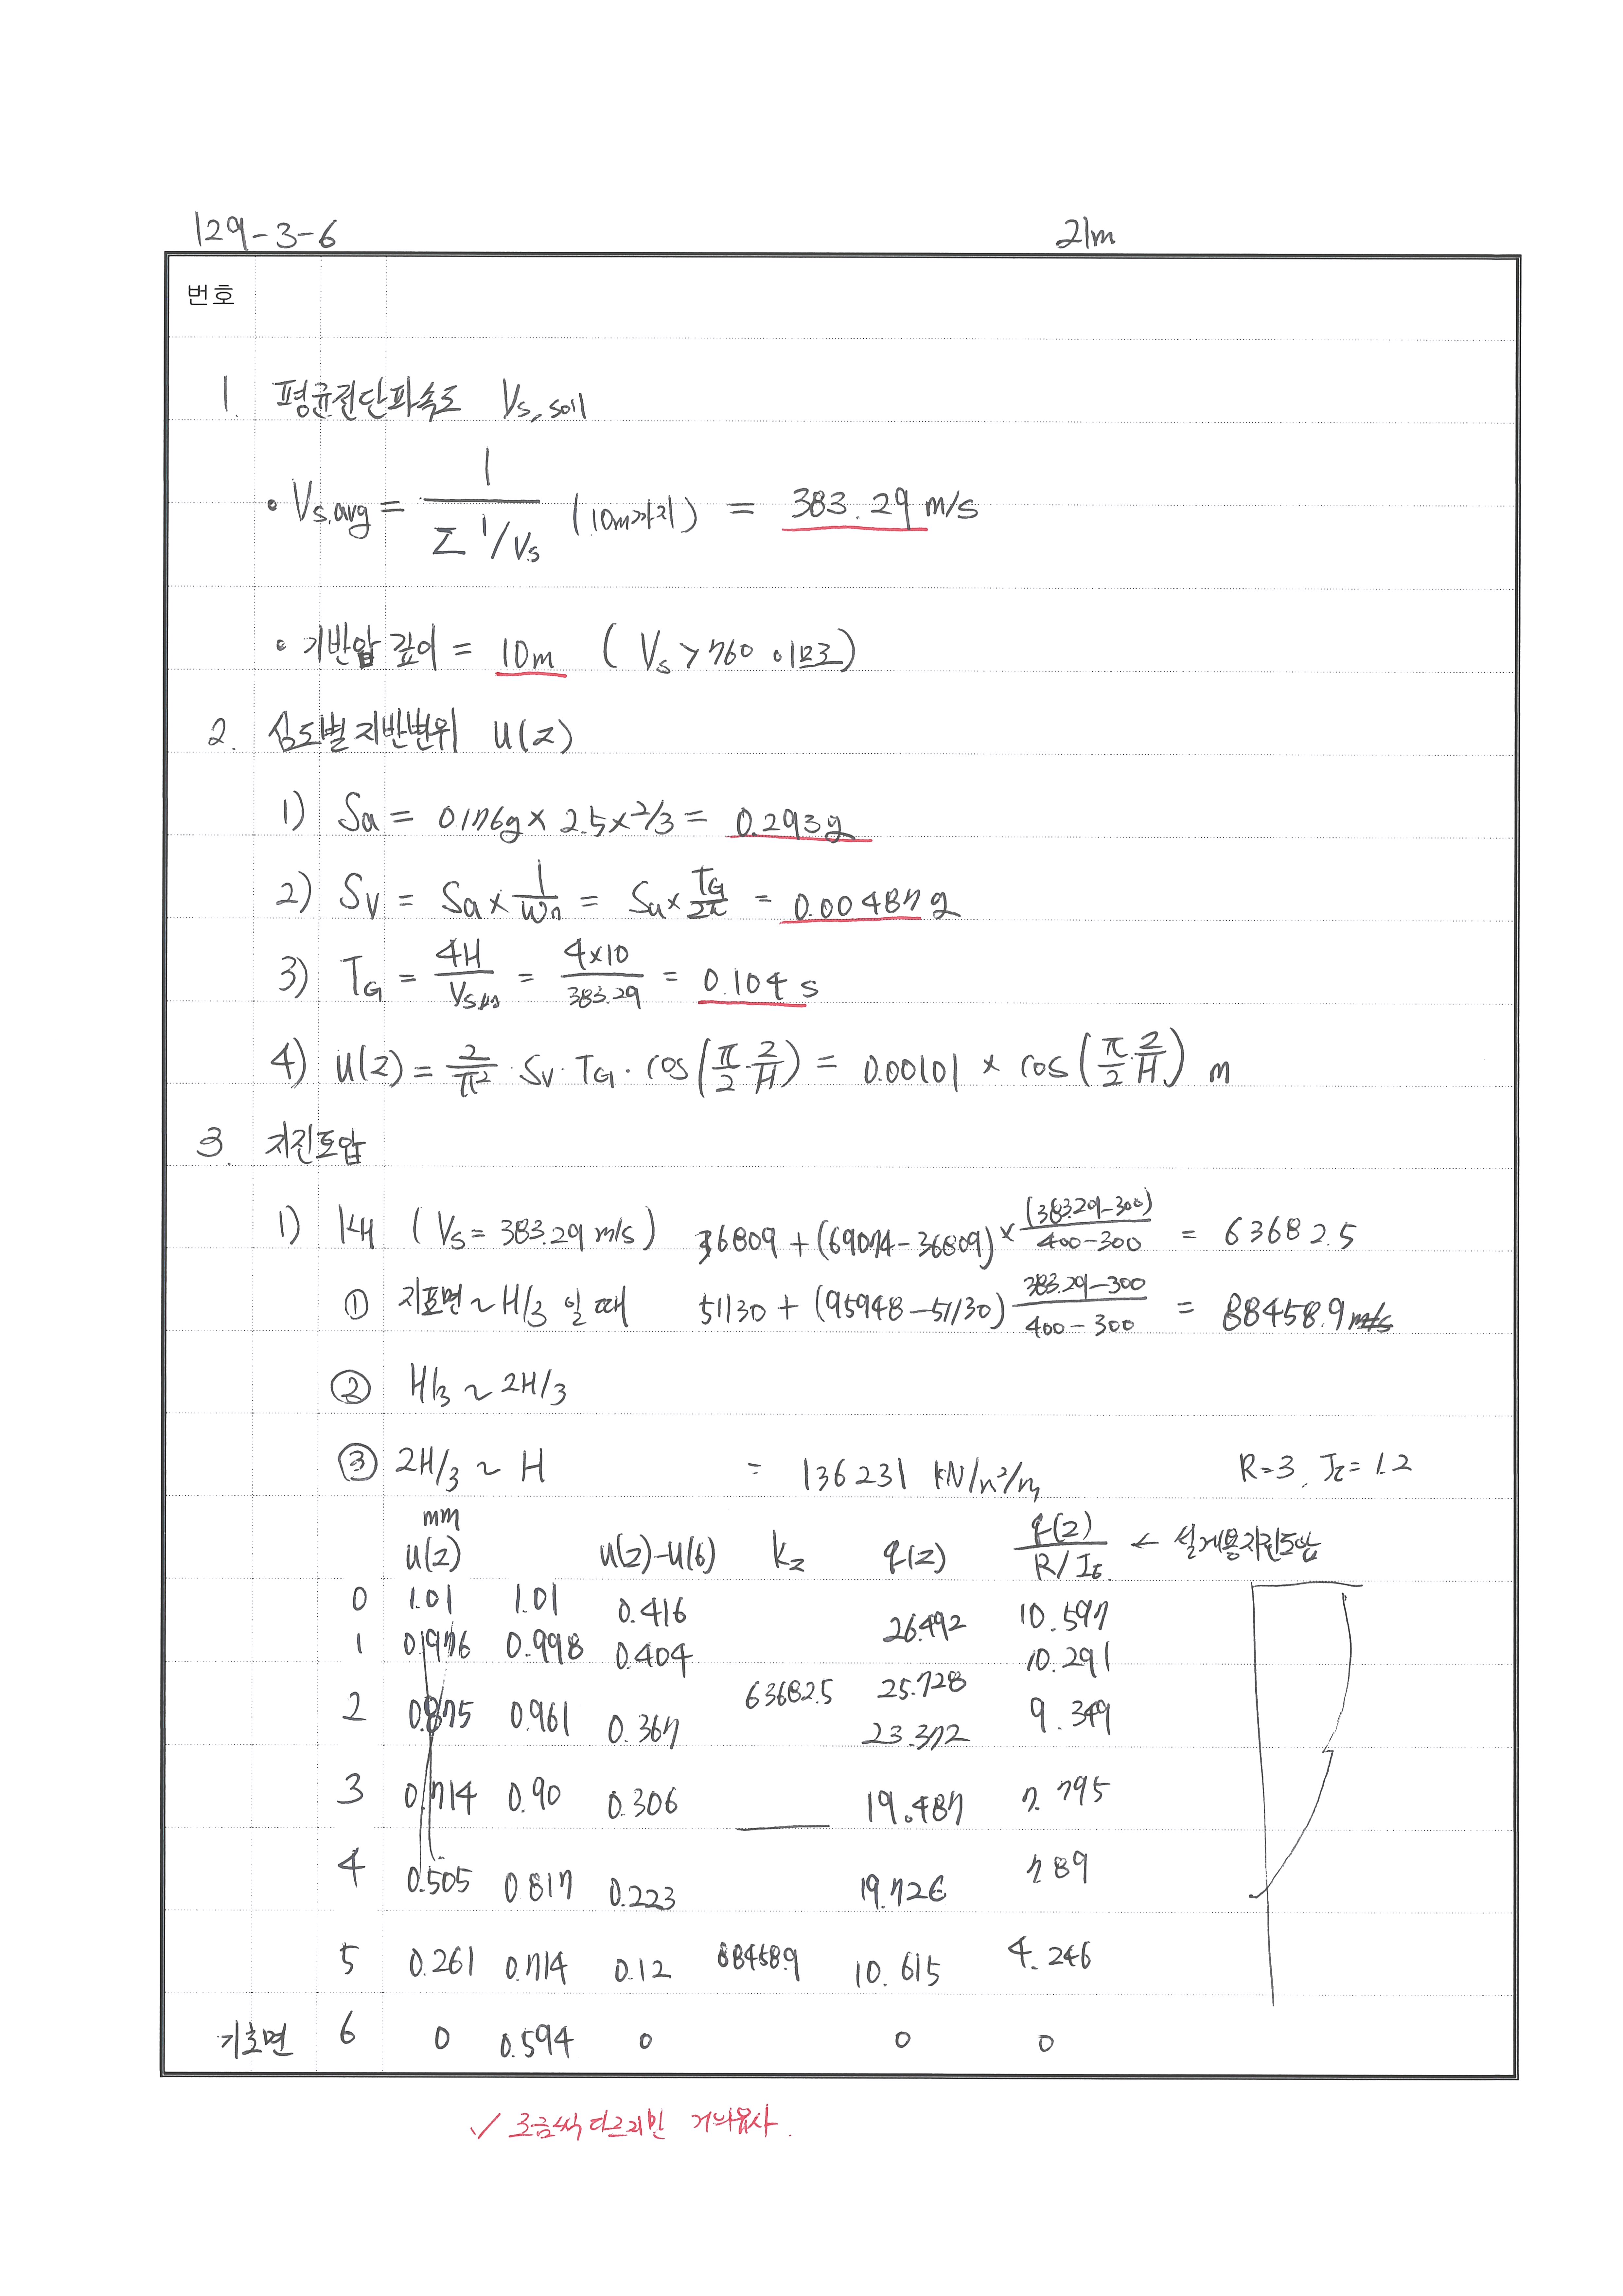 129-3-6 21m
번호
1. 평균전단파속도 Vs,soil
• Vs,avg = 1 / Σ 1/Vs (10m까지) = 383.29 m/s
• 기반암 깊이 = 10m ( Vs > 760 이므로)
2. 심도별 지반변위 u(z)
1) Sa = 0.176g × 2.5 × 2/3 = 0.293g
2) Sv = Sa × 1/ωn = Sa × TG/2π = 0.00487g
3) TG = 4H/Vs = 4×10/383.29 = 0.104 s
4) u(z) = 2/π² · Sv · TG · cos(π/2 · z/H) = 0.00101 × cos(π/2 · z/H) m
3. 지진토압
1) KH ( Vs = 383.29 m/s ) 36809 + (69074 - 36809) × (383.29 - 300)/400 - 300 = 63682.5
① 지표면 ~ H/3 일 때 51130 + (95948 - 51130) 383.29 - 300/400 - 300 = 88458.9 m/s
② H/3 ~ 2H/3
③ 2H/3 ~ H = 136231 kN/m²/m R=3, IE = 1.2
mm
u(z) u(z)-u(6) kz q(z) q(z)/R/IE ← 설계용지진토압
0 1.01 1.01 0.416 26.492 10.597
1 0.976 0.998 0.404 25.728 10.291
2 0.875 0.961 0.367 63682.5 23.372 9.349
3 0.714 0.90 0.306 19.487 7.795
4 0.505 0.817 0.223 19.726 7.89
5 0.261 0.714 0.12 88458.9 10.615 4.246
기초면 6 0 0.594 0 0 0
✓ 조금씩 다르지만 거의유사.